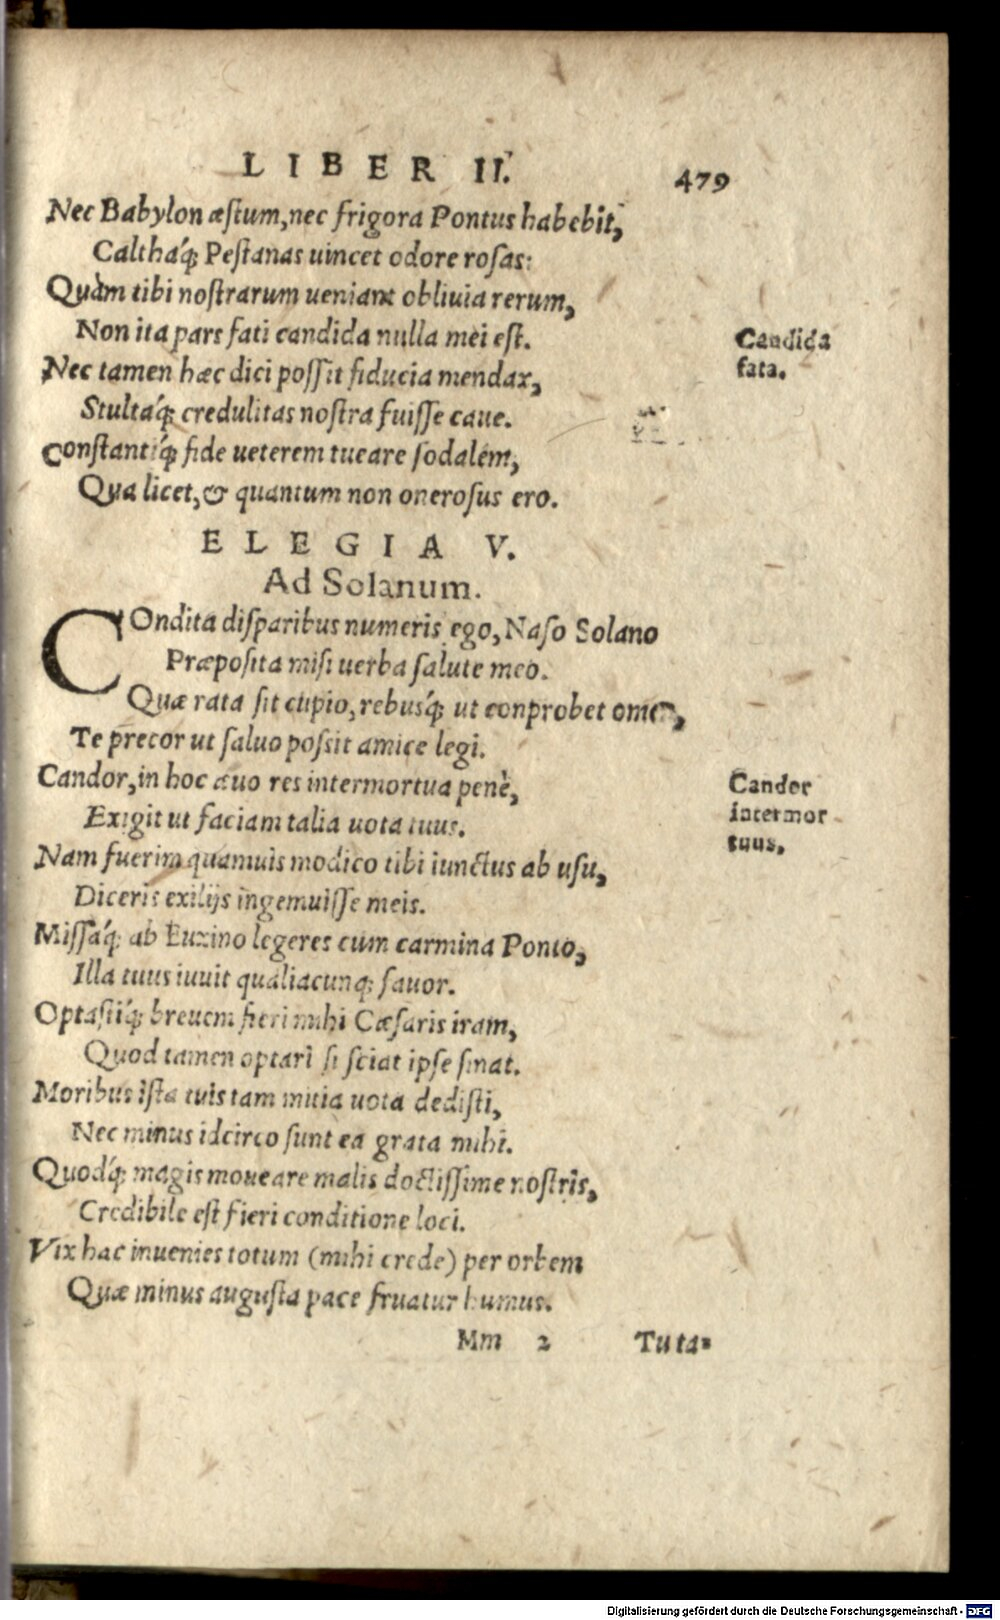 LIBER II. 479
Nec Babylon æstum, nec frigora Pontus habebit,
Calthaq́; Pestanas uincet odore rosas:
Quàm tibi nostrarum ueniant obliuia rerum,
Non ita pars fati candida nulla mei est.
Candida
fata.
Nec tamen hæc dici possit fiducia mendax,
Stultaq́; credulitas nostra fuisse caue.
Constantiq́; fide ueterem tueare sodalem,
Qua licet, & quantum non onerosus ero.
ELEGIA V.
Ad Solanum.
COndita disparibus numeris ego, Naso Solano
Præposita misi uerba salute meo.
Quæ rata sit cupio, rebusq́; ut conprobet omen,
Te precor ut saluo possit amice legi.
Candor, in hoc æuo res intermortua penè,
Candor
intermor
tuus.
Exigit ut faciam talia uota tuus.
Nam fuerim quamuis modico tibi iunctus ab usu,
Diceris exilijs ingemuisse meis.
Missaq́; ab Euxino legeres cum carmina Ponto,
Illa tuus iuuit qualiacunq; fauor.
Optastiq́; breuem fieri mihi Cæsaris iram,
Quod tamen optari si sciat ipse sinat.
Moribus ista tuis tam mitia uota dedisti,
Nec minus idcirco sunt ea grata mihi.
Quodq́; magis moueare malis doctissime nostris,
Credibile est fieri conditione loci.
Vix hac inuenies totum (mihi crede) per orbem
Quæ minus augusta pace fruatur humus.
Mm 2 Tuta-
Digitalisierung gefördert durch die Deutsche Forschungsgemeinschaft - DFG